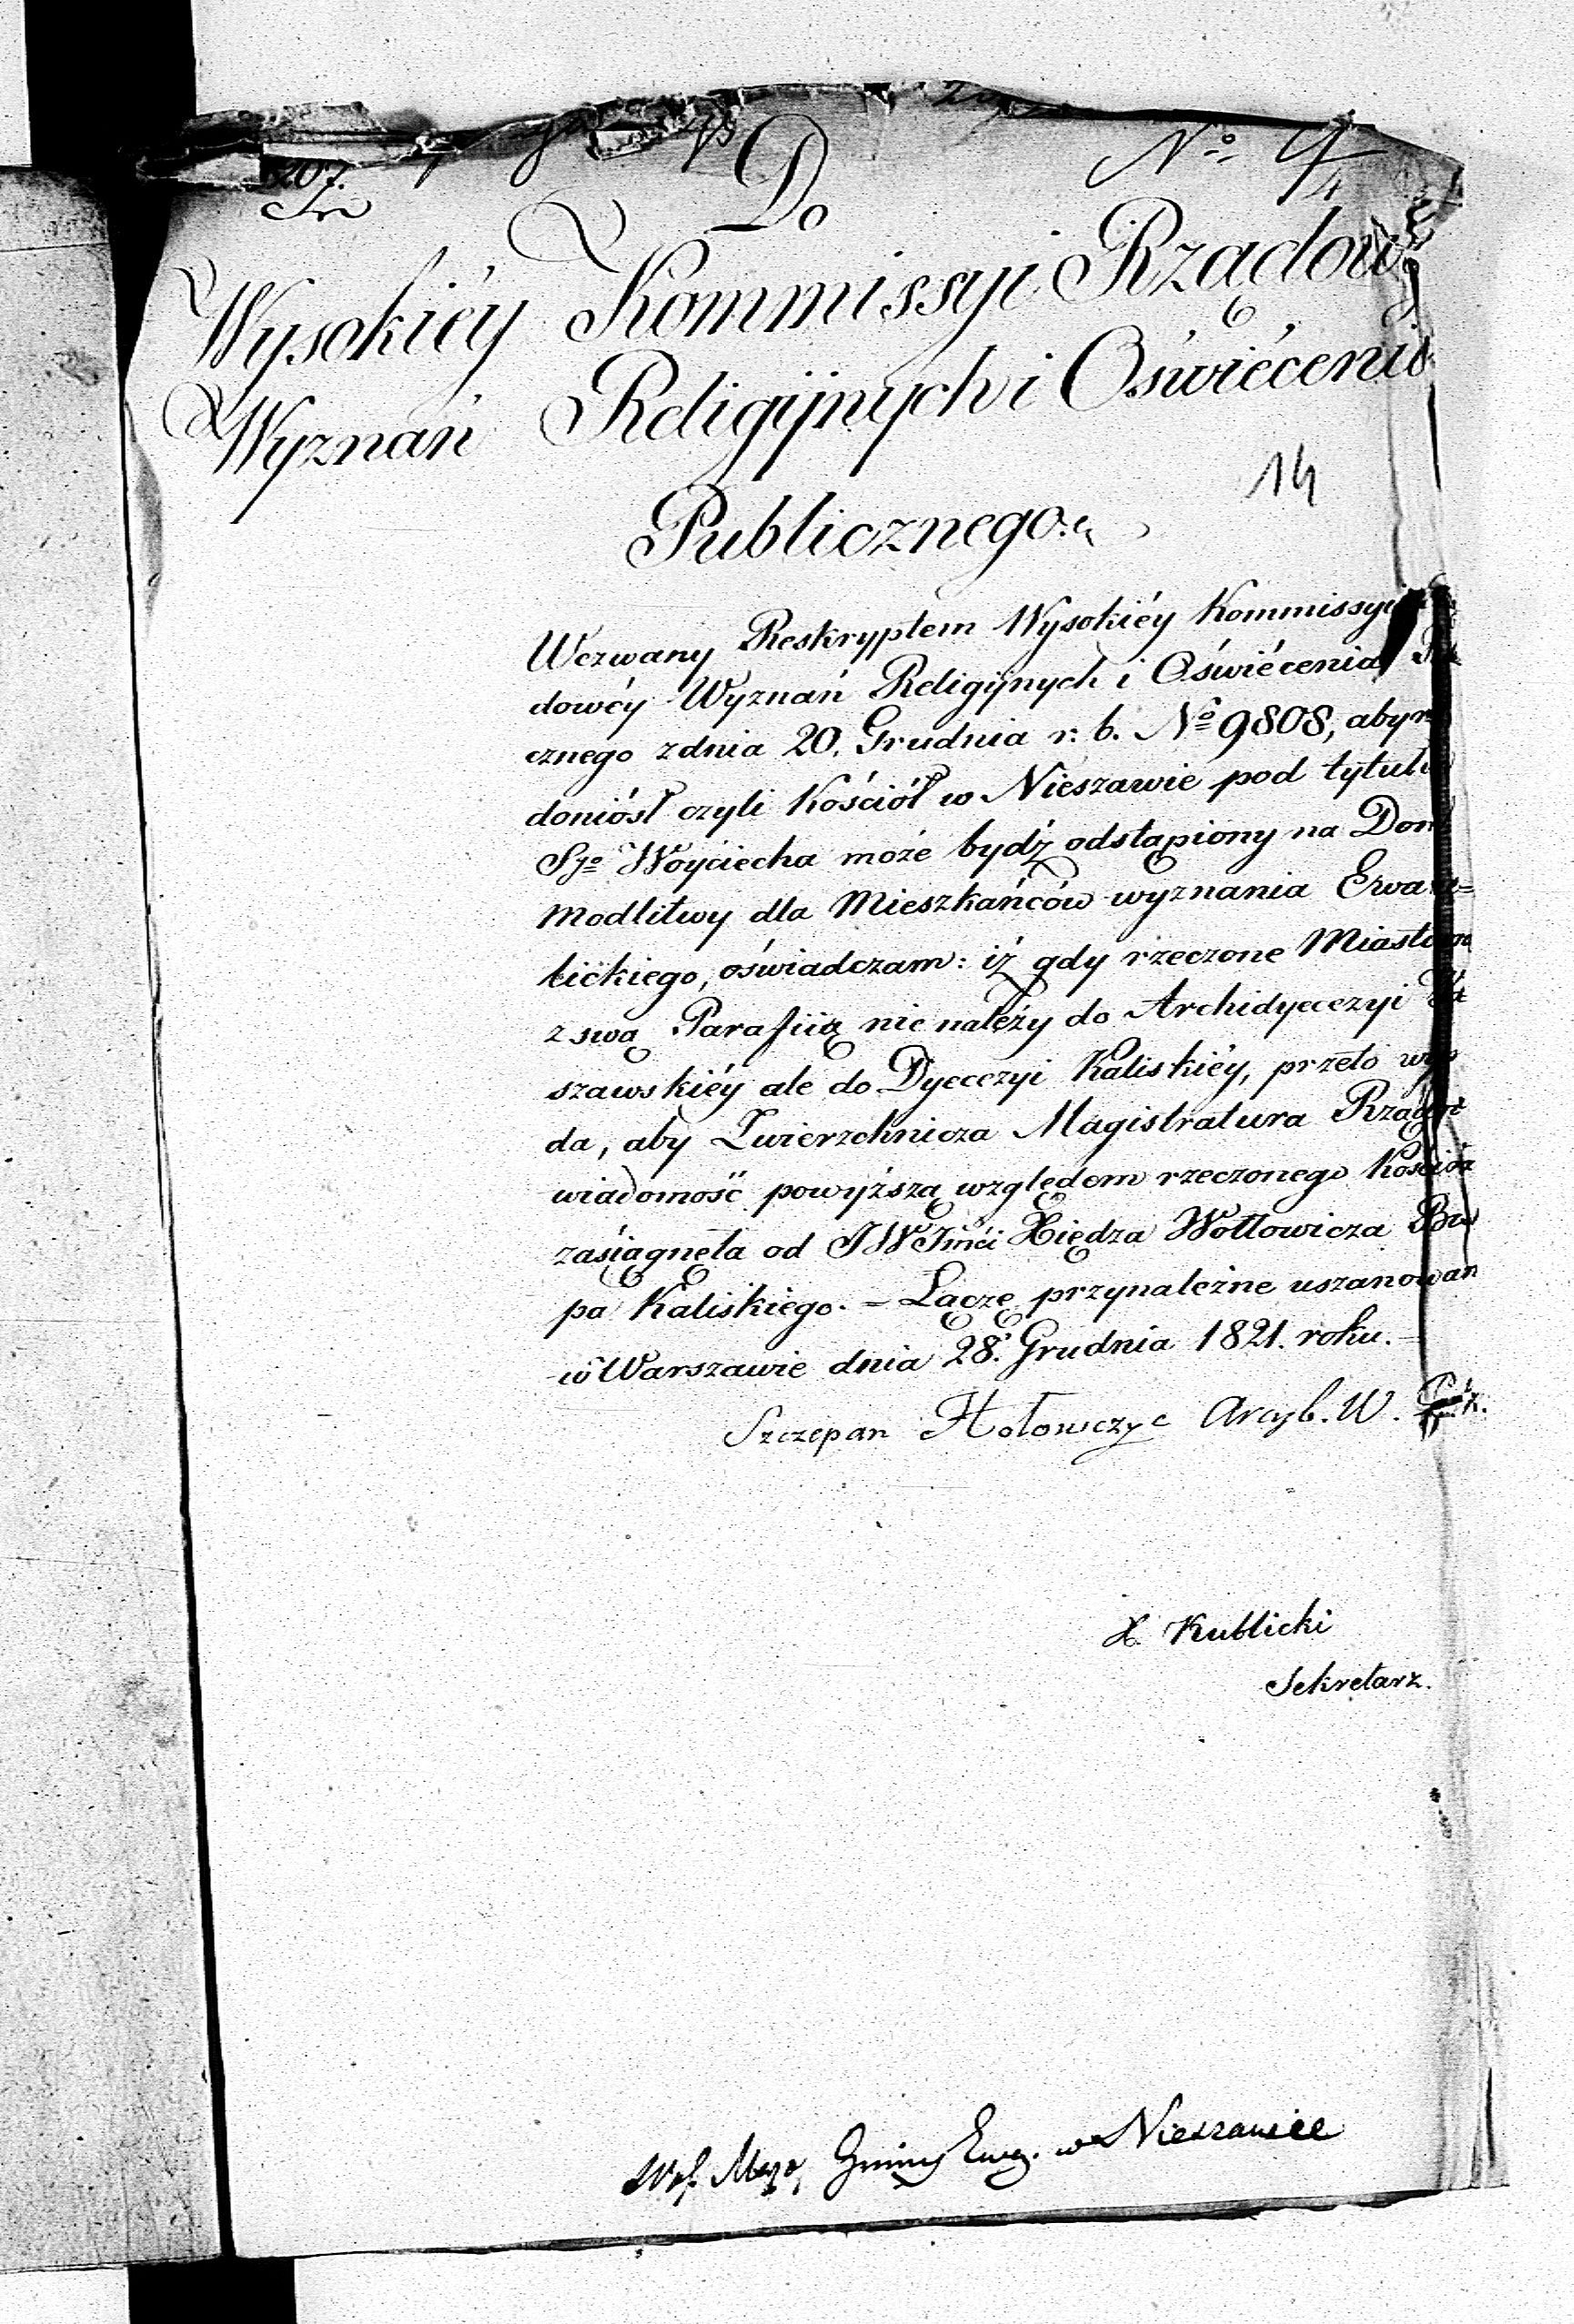 207.
Do
No
Wysokiéy Kommissyi Rządowéy
Wyznań Religijnych i Oświécenia
14
Publicznego.
Wezwany Reskryptem Wysokiéy Kommissyi
dowéy Wyznań Religijnych i Oświécenia
cznego z dnia 20. Grudnia r: b. No 9808, abym
doniósł czyli Kościół w Nieszawie pod tytułem
Sgo Woyciecha może bydź odstąpiony na Dom
modlitwy dla Mieszkańców wyznania Ewan=
lickiego, oświadczam: iż gdy rzeczone Miasto
z swą Parafiią nie należy do Archidyecezyi
szawskiéy ale do Dyecezyi Kaliskiéy, przeto
da, aby Zwierzchnicza Magistratura
wiadomość powyższą względem rzeczonego
zasiągnęła od JWJmći Xiędza Wołłowicza
pa Kaliskiego. = Łączę przynależne uszanowan
w Warszawie dnia 28. Grudnia 1821. roku. —
Szczepan Hołowczyc Arcyb. W.
X. Kublicki
Sekretarz.
Gminy Ewg. w Nieszawie